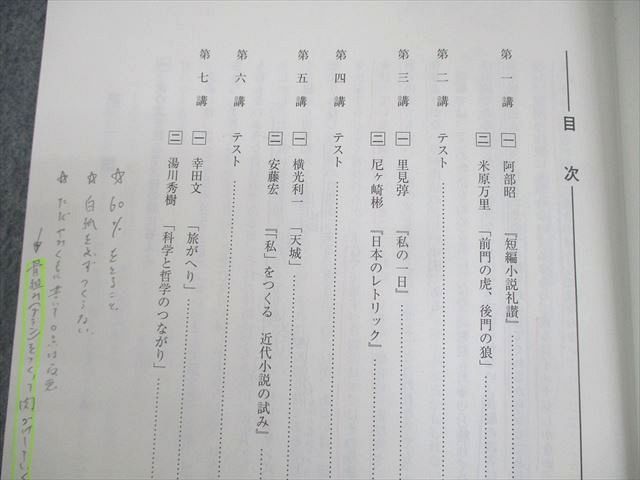 目次
第一講 一 阿部昭 『短編小説礼讃』
二 米原万里 「前門の虎、後門の狼」
第二講 テスト
第三講 一 里見弴 『私の一日』
二 尼ヶ崎彬 『日本のレトリック』
第四講 テスト
第五講 一 横光利一 「天城」
二 安藤宏 『「私」をつくる 近代小説の試み』
第六講 テスト
第七講 一 幸田文 「旅がへり」
二 湯川秀樹 「科学と哲学のつながり」
☆ 60% をとること
☆ 白紙を必ずつくらない